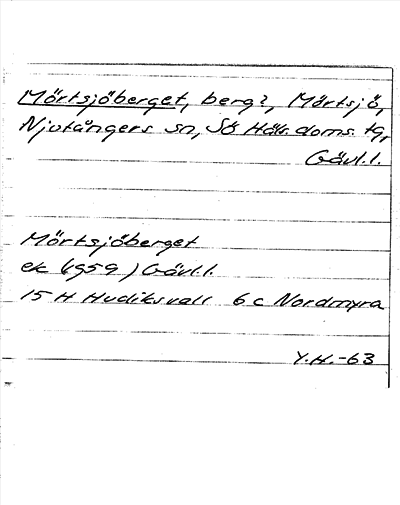 Mörtsjöberget, berg?, Mörtsjö,
Njutångers sn, Sö Häls. doms. tg,
Gävl.l.
Mörtsjöberget
ek (1959) Gävl.l.
15 H Hudiksvall 6 c Nordmyra
Y.H.-63